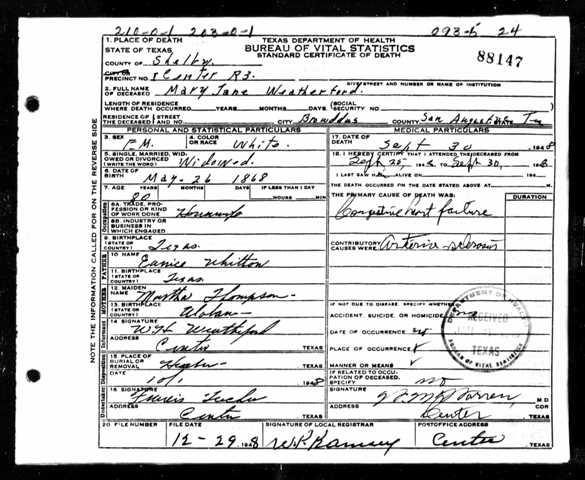 210-0-1 203-0-1 093-5 24
TEXAS DEPARTMENT OF HEALTH
BUREAU OF VITAL STATISTICS
STANDARD CERTIFICATE OF DEATH
88147
1. PLACE OF DEATH
STATE OF TEXAS
COUNTY OF Shelby
CITY OR
PRECINCT NO. Center R3.
STREET AND NUMBER OR NAME OF INSTITUTION
2. FULL NAME
OF DECEASED Mary Jane Weatherford.
LENGTH OF RESIDENCE
WHERE DEATH OCCURRED YEARS MONTHS DAYS (SOCIAL)
RESIDENCE OF STREET
THE DECEASED AND NO. CITY Broaddus COUNTY San Augustine Tex
PERSONAL AND STATISTICAL PARTICULARS
3. SEX
FM.
4. COLOR
OR RACE White.
5. SINGLE, MARRIED, WID-
OWED OR DIVORCED
(WRITE THE WORD) Widowed.
6. DATE OF
BIRTH May-26 1868
7. AGE YEARS MONTHS DAYS IF LESS THAN 1 DAY
80 HOURS MIN
8A. TRADE, PRO-
FESSION OR KIND
OF WORK DONE Housewife
8B. INDUSTRY OR
BUSINESS IN
WHICH ENGAGED
9. BIRTHPLACE
(STATE OR
COUNTRY) Texas.
10 NAME
Eunice Whitton
11. BIRTHPLACE
(STATE OR
COUNTRY) Texas
12. MAIDEN
NAME Martha Thompson
13. BIRTHPLACE
(STATE OR
COUNTRY)
14 SIGNATURE
W.H. Weatherford
ADDRESS
Center TEXAS
15. PLACE OF
BURIAL OR
REMOVAL TEXAS
DATE
10/1 1948
16. SIGNATURE
ADDRESS
Center TEXAS
MEDICAL PARTICULARS
17. DATE OF
DEATH Sept 30 1948
18. I HEREBY CERTIFY THAT I ATTENDED THE DECEASED FROM
Sept 20, 1948 TO Sept 30, 1948
I LAST SAW H ALIVE ON 19
THE DEATH OCCURRED ON THE DATE STATED ABOVE AT M
THE PRIMARY CAUSE OF DEATH WAS:
DURATION
Congestive heart failure
CONTRIBUTORY
CAUSES WERE: Arterio sclerosis
IF NOT DUE TO DISEASE, SPECIFY WHETHER:
ACCIDENT, SUICIDE, OR HOMICIDE no
DATE OF OCCURRENCE
PLACE OF OCCURRENCE
MANNER OR MEANS
IF RELATED TO OCCU-
PATION OF DECEASED,
SPECIFY no
SIGNATURE
Warren M D
ADDRESS COR
Center TEXAS
DEPARTMENT OF HEALTH
RECEIVED
TEXAS
BUREAU OF VITAL STATISTICS
20 FILE NUMBER FILE DATE SIGNATURE OF LOCAL REGISTRAR POSTOFFICE ADDRESS
12-29 1948 W.R. Ramsey Center TEXAS
NOTE THE INFORMATION CALLED FOR ON THE REVERSE SIDE
Occupation
FATHER
MOTHER
Informant
Disposition
Undertaker